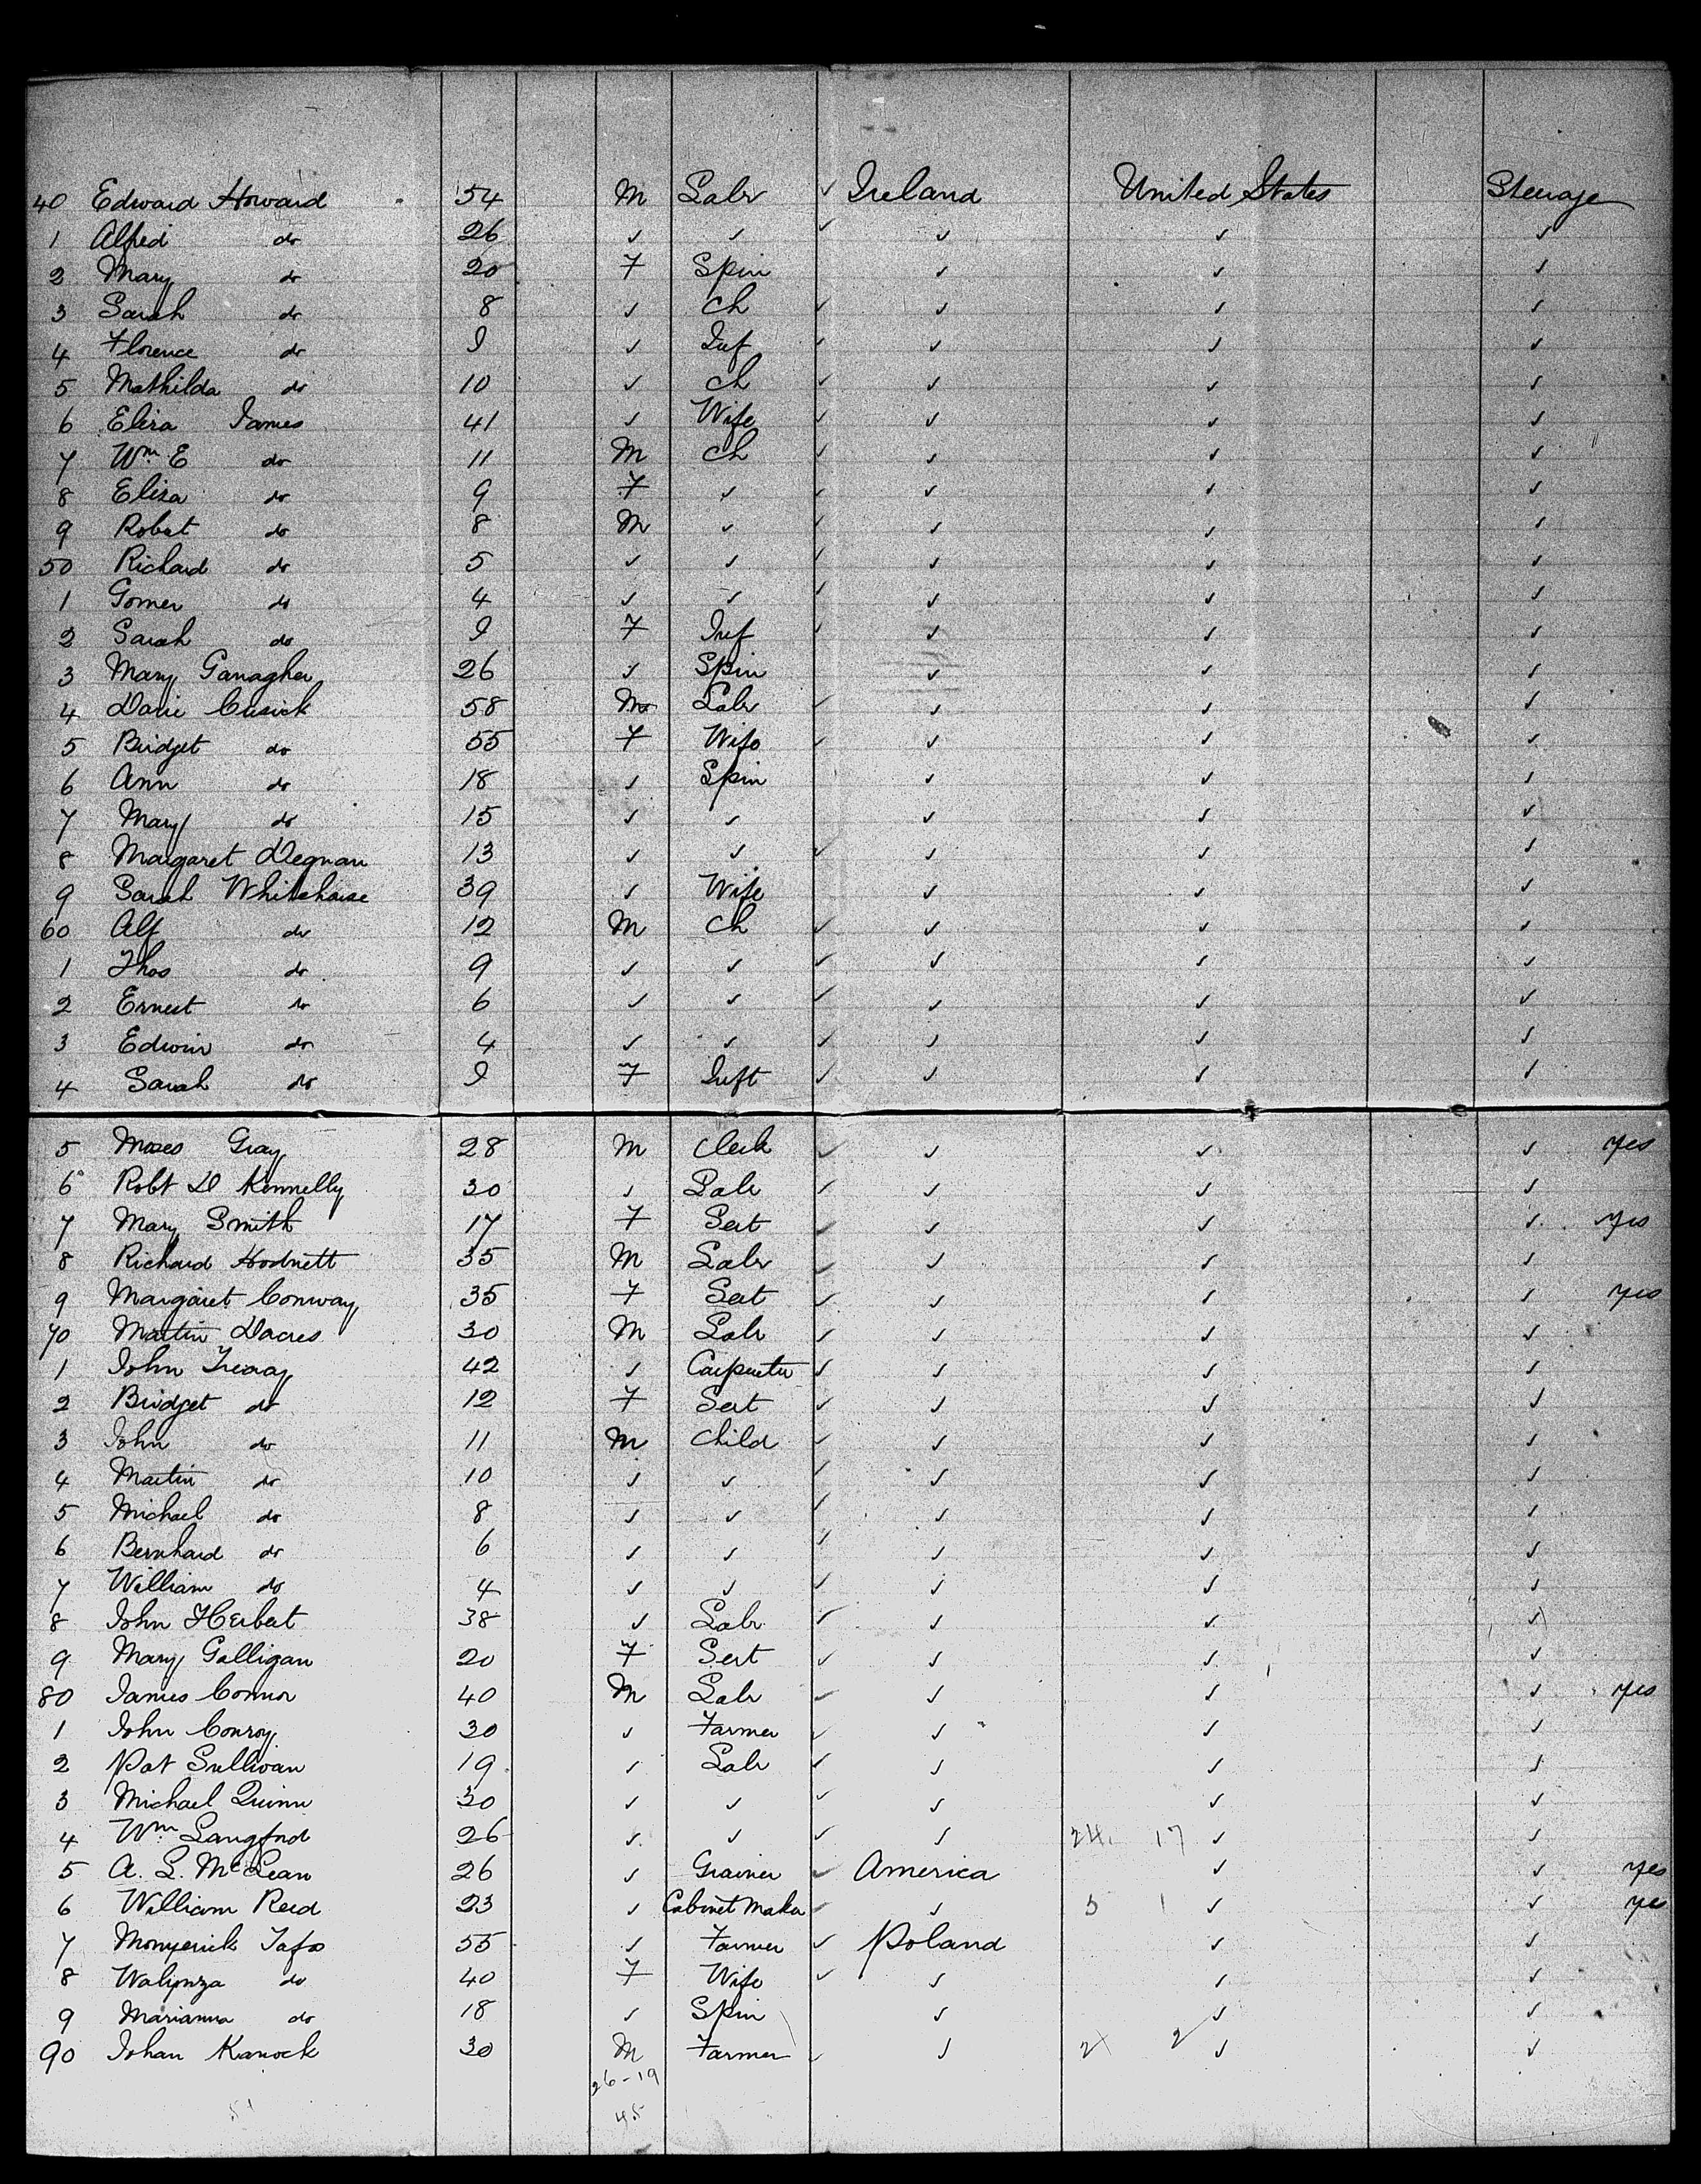 40 Edward Howard 54 M Labr ✓ Ireland United States Steerage
1 Alfred do 26 ✓ ✓ ✓ ✓ ✓ ✓
2 Mary do 20 F Spin ✓ ✓ ✓
3 Sarah do 8 ✓ Ch ✓ ✓ ✓ ✓
4 Florence do 9 ✓ Inf ✓ ✓ ✓ ✓
5 Mathilda do 10 ✓ Ch ✓ ✓ ✓ ✓
6 Eliza James 41 ✓ Wife ✓ ✓ ✓ ✓
7 Wm E do 11 M Ch ✓ ✓ ✓ ✓
8 Eliza do 9 F ✓ ✓ ✓ ✓ ✓
9 Robert do 8 M ✓ ✓ ✓ ✓ ✓
50 Richard do 5 ✓ ✓ ✓ ✓ ✓ ✓
1 Gomer do 4 ✓ ✓ ✓ ✓ ✓ ✓
2 Sarah do F Inf ✓ ✓ ✓ ✓
3 Mary Ganagher 26 ✓ Spin ✓ ✓ ✓
4 Cusick 58 M Labr ✓ ✓ ✓ ✓
5 Bridget do 55 F Wife ✓ ✓ ✓ ✓
6 Ann do 18 ✓ Spin ✓ ✓ ✓
7 Mary do 15 ✓ ✓ ✓ ✓ ✓
8 Margaret Degnan 13 ✓ ✓ ✓ ✓ ✓ ✓
9 Sarah Whitehouse 39 ✓ Wife ✓ ✓ ✓
60 Alf do 12 M Ch ✓ ✓ ✓ ✓
1 Thos do 9 ✓ ✓ ✓ ✓ ✓ ✓
2 Ernest do 6 ✓ ✓ ✓ ✓ ✓ ✓
3 Edwin do 4 ✓ ✓ ✓ ✓ ✓ ✓
4 Sarah do F Inft ✓ ✓ ✓ ✓
5 Moses Gray 28 M Clerk ✓ ✓ ✓ ✓ yes
6 Robt D Kennelly 30 ✓ Labr ✓ ✓ ✓ ✓
7 Mary Smith 17 F Sert ✓ ✓ ✓ ✓ yes
8 Richard Hodnett 35 M Labr ✓ ✓ ✓ ✓
9 Margaret Conway 35 F Sert ✓ ✓ ✓ ✓ yes
70 Martin Dacres 30 M Labr ✓ ✓ ✓ ✓
1 John Treacy 42 ✓ Carpenter ✓ ✓ ✓ ✓
2 Bridget do 12 F Sert ✓ ✓ ✓ ✓
3 John do 11 M Child ✓ ✓ ✓ ✓
4 Martin do 10 ✓ ✓ ✓ ✓ ✓ ✓
5 Michael do 8 ✓ ✓ ✓ ✓ ✓ ✓
6 Bernhard do 6 ✓ ✓ ✓ ✓ ✓ ✓
7 William do 4 ✓ ✓ ✓ ✓ ✓ ✓
8 John Herbert 38 ✓ Labr ✓ ✓ ✓ ✓
9 Mary Galligan 20 F Sert ✓ ✓ ✓ ✓
80 James Connor 40 M Labr ✓ ✓ ✓ ✓ yes
1 John Conroy 30 ✓ Farmer ✓ ✓ ✓ ✓
2 Pat Sullivan 19 ✓ Labr ✓ ✓ ✓ ✓
3 Michael Quinn 30 ✓ ✓ ✓ ✓ ✓ ✓
4 Wm Langford 26 ✓ ✓ ✓ ✓ 24 17 ✓ ✓
5 A. L. McLean 26 ✓ Grainer ✓ America ✓ ✓ yes
6 William Reid 23 ✓ Cabinet Maker ✓ ✓ 3 1 ✓ ✓ yes
7 55 ✓ Farmer ✓ Poland ✓ ✓
8 do 40 F Wife ✓ ✓ ✓ ✓
9 Marianna do 18 ✓ Spin ✓ ✓ ✓
90 Johan Kanock 30 M Farmer ✓ ✓ 2 ✓ ✓
26-19
45